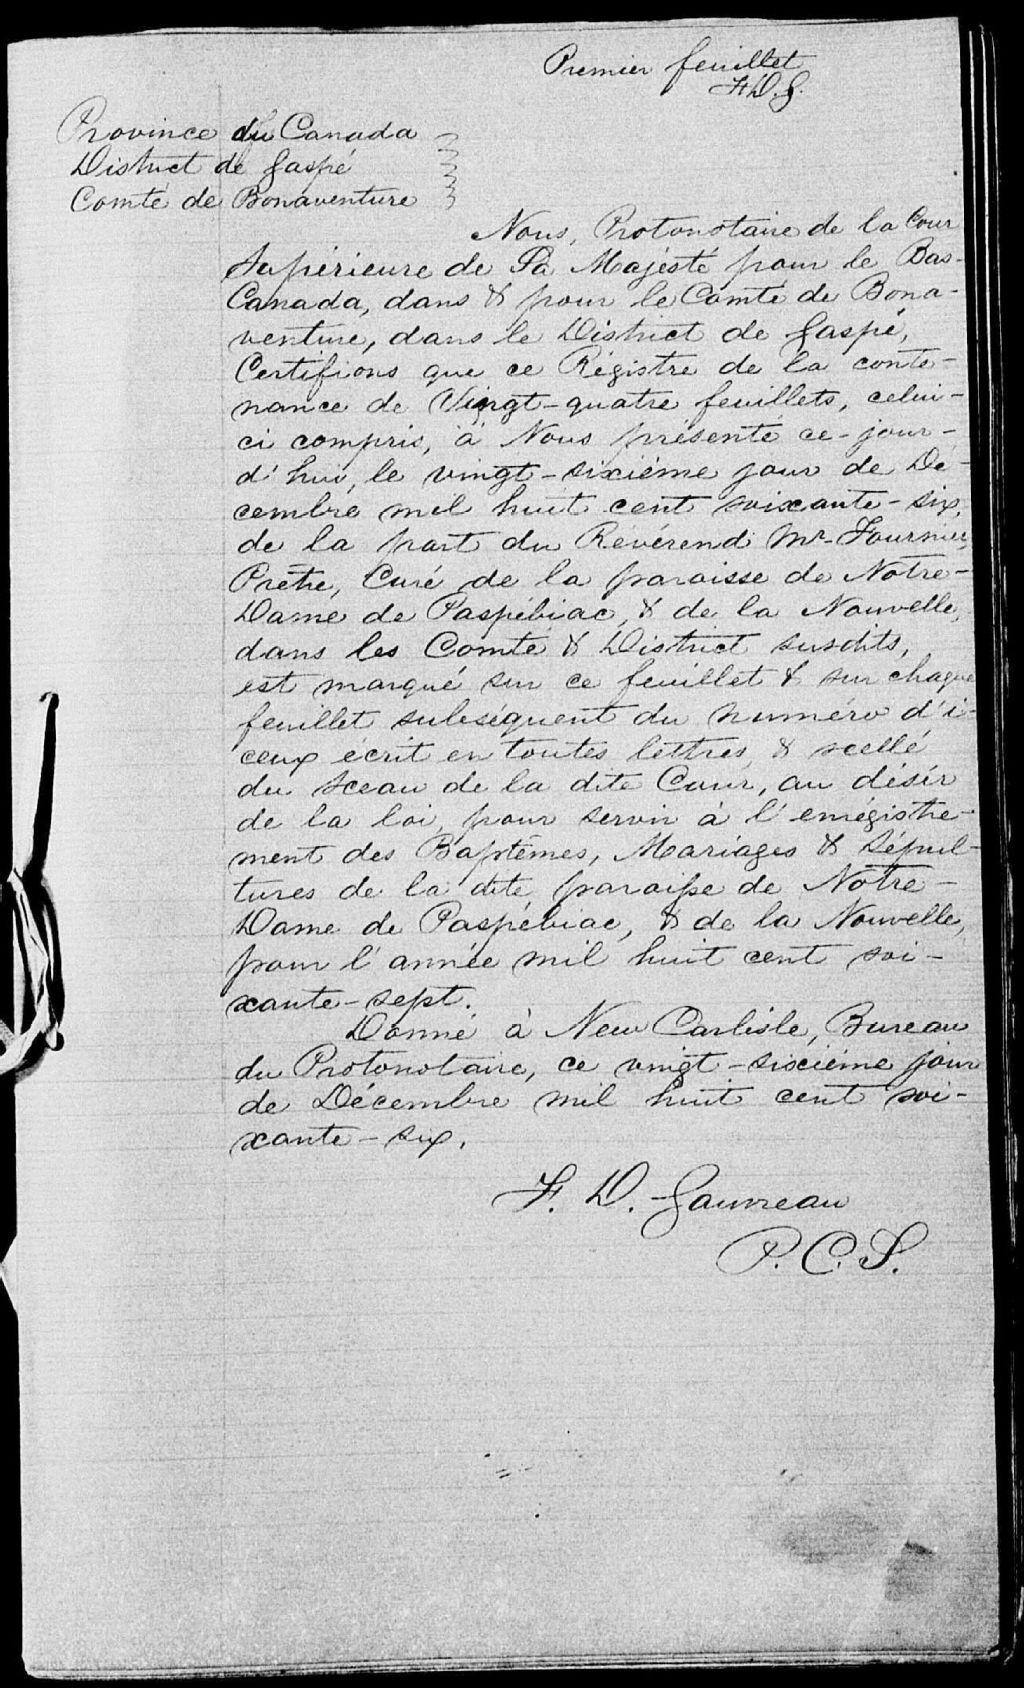 Premier feuillet
F.D.G.
Province du Canada
District de Gaspé
Comté de Bonaventure
Nous, Protonotaire de la Cour
Supérieure de Sa Majesté pour le Bas-
Canada, dans & pour le Comté de Bona-
venture, dans le District de Gaspé,
Certifions que ce Régistre de la conte-
nance de Vingt-quatre feuillets, celui-
ci compris, à Nous présenté ce-jour-
d'hui, le vingt-sixième jour de Dé-
cembre mil huit cent soixante-six,
de la part du Revérend Mr. Fournier,
Prêtre, Curé de la paroisse de Notre-
Dame de Paspébiac, & de la Nouvelle,
dans les Comté & District susdits,
est marqué sur ce feuillet & sur chaque
feuillet subséquent du numéro d'i-
ceux écrit en toutes lettres, & scellé
du sceau de la dite Cour, au désir
de la loi, pour servir à l'enrégistre-
ment des Baptêmes, Mariages & Sépul-
tures de la dite paroisse de Notre-
Dame de Paspébiac, & de la Nouvelle,
pour l'année mil huit cent soi-
xante-sept.
Donné à New Carlisle, Bureau
du Protonotaire, ce vingt-sixième jour
de Décembre mil huit cent soi-
xante-six.
F. D. Gauvreau
P. C. S.